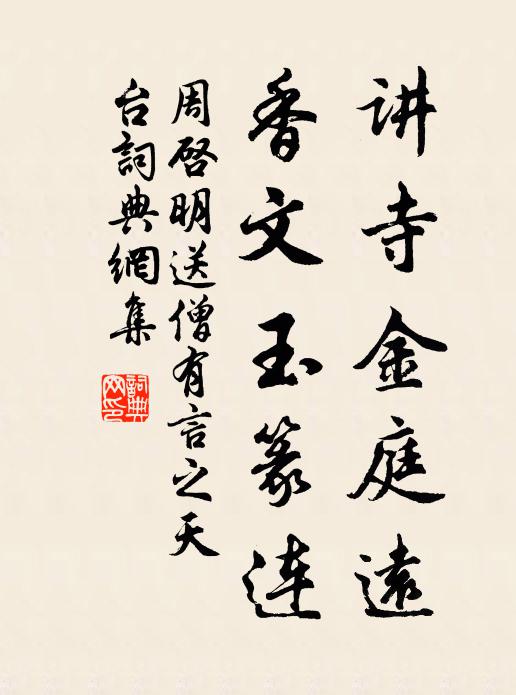 讲寺金庭遠
香文玉篆連
周啓明送僧有言之天
台詞典網集
詞典网印